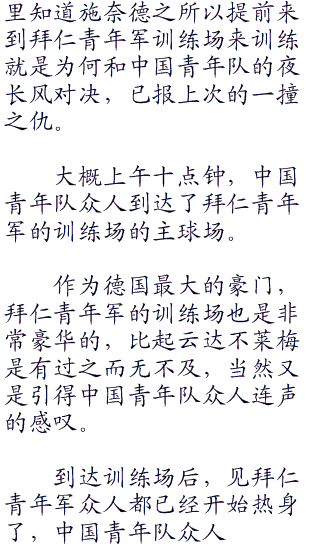 里知道施奈德之所以提前来
到拜仁青年军训练场来训练
就是为何和中国青年队的夜
长风对决，已报上次的一撞
之仇。
大概上午十点钟，中国
青年队众人到达了拜仁青年
军的训练场的主球场。
作为德国最大的豪门，
拜仁青年军的训练场也是非
常豪华的，比起云达不莱梅
是有过之而无不及，当然又
是引得中国青年队众人连声
的感叹。
到达训练场后，见拜仁
青年军众人都已经开始热身
了，中国青年队众人